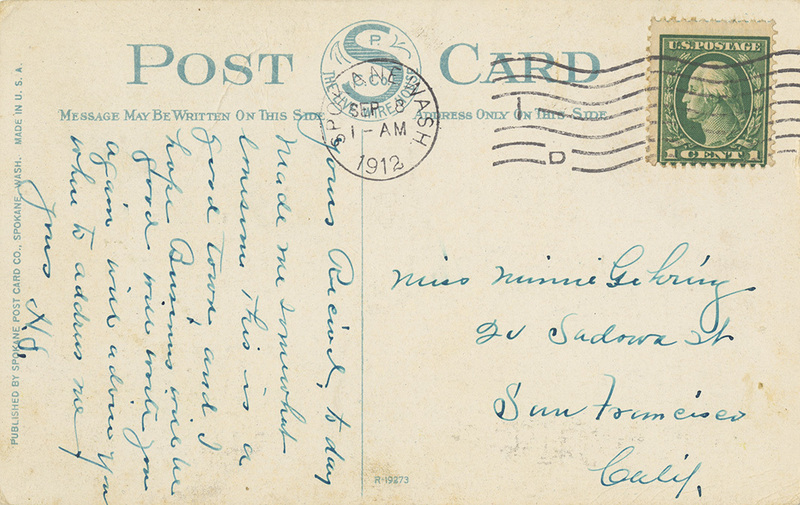 POST CARD
S
P. C. Co.
THE LIVE WIRE HOUSE
MESSAGE MAY BE WRITTEN ON THIS SIDE
ADDRESS ONLY ON THIS SIDE
SPOKANE WASH.
SEP 8
1-AM
1912
D
U.S. POSTAGE
1 CENT 1
yours Recived, to day
Made me somewhat
lonsome This is a
good town, and I
hope Business will be
good will write you
again will advise you
what to address me
yours
Miss Minnie Gehring
Sadowa St
San Francisco
Calif.
PUBLISHED BY SPOKANE POST CARD CO., SPOKANE, WASH. MADE IN U. S. A.
R-19273